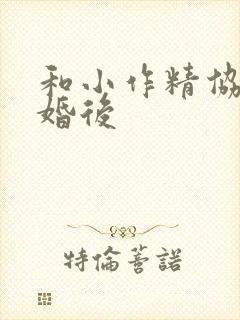 和小作精協
婚後
特倫蓍諾